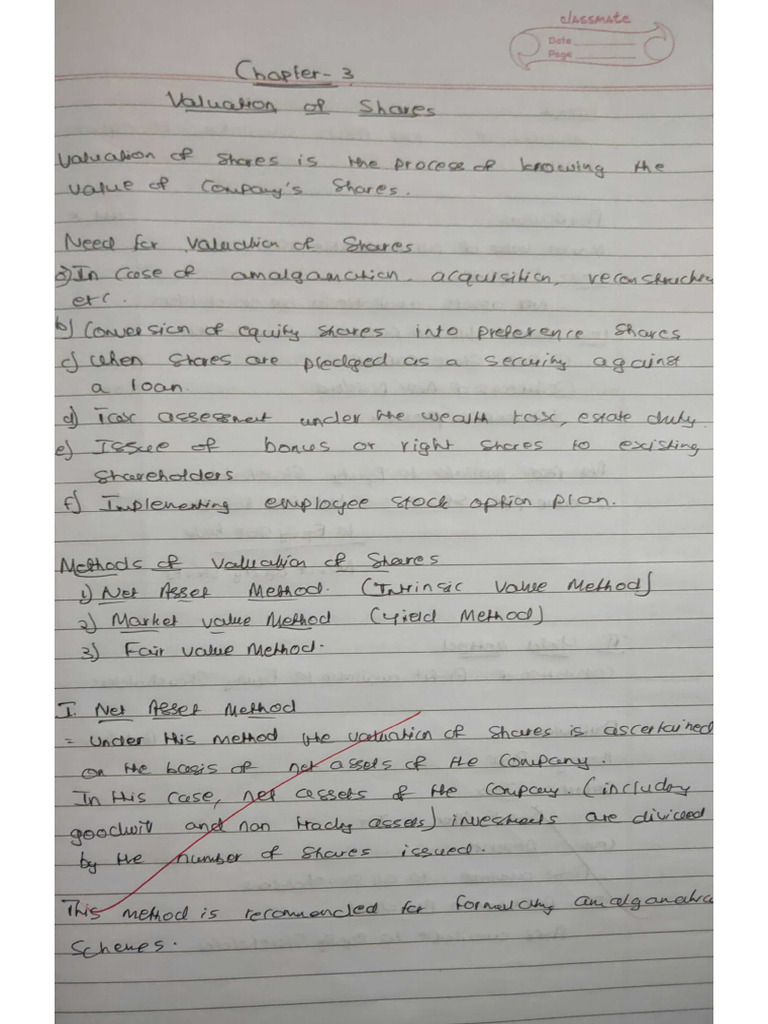 classmate
Date
Page
Chapter - 3
Valuation of Shares
Valuation of shares is the process of knowing the
value of Company's Shares.
Need for Valuation of Shares
a) In Case of amalgamation, acquisition, reconstruction
etc.
b) Conversion of equity shares into preference shares
c) When shares are pledged as a security against
a loan.
d) Tax assessment under the wealth tax, estate duty
e) Issue of bonus or right shares to existing
shareholders
f) Implementing employee stock option plan.
Methods of Valuation of Shares
1) Net Asset Method. (Intrinsic Value Method)
2) Market value Method (Yield Method)
3) Fair value Method.
I. Net Asset Method
= Under this method the valuation of shares is ascertained
on the basis of net assets of the Company.
In this case, net assets of the company. (including
goodwill and non trading assets) investments are divided
by the number of shares issued.
This method is recommended for formulating amalgamation
schemes.